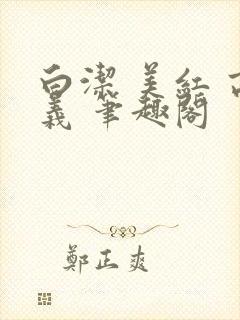 白潔 美紅 高
義 筆趣閣
鄭正爽